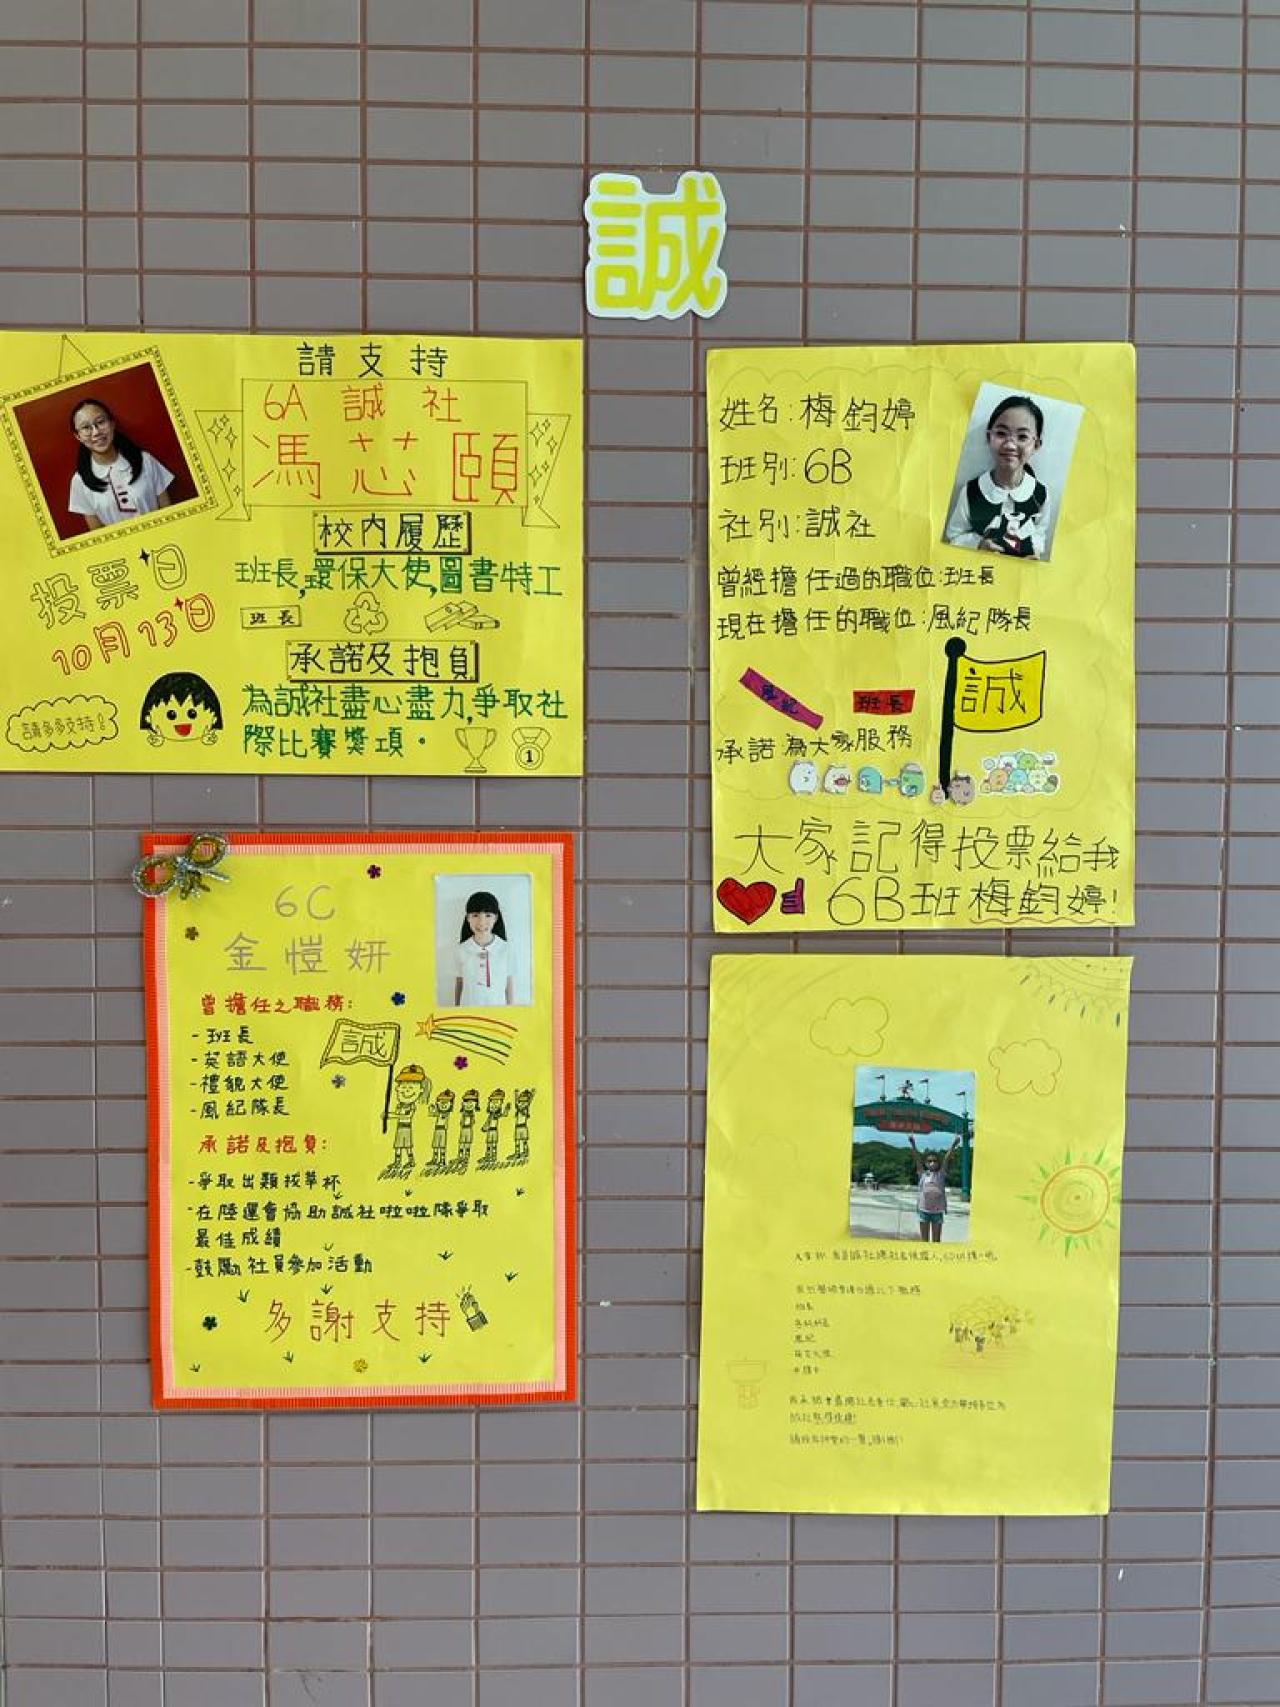 誠
請支持
6A 誠社
馮芯頤
校內履歷
班長,環保大使,圖書特工
班長
承諾及抱負
為誠社盡心盡力,爭取社
際比賽獎項。
1
投票日
10月13日
請多多支持!
姓名:梅鈞婷
班別:6B
社別:誠社
曾經擔任過的職位:班長
現在擔任的職位:風紀隊長
風紀
班長
誠
承諾為大家服務
大家記得投票給我
6B班梅鈞婷!
6C
金愷妍
曾擔任之職務:
-班長
-英語大使
-禮貌大使
-風紀隊長
誠
承諾及抱負:
-爭取出類拔萃杯
-在陸運會協助誠社啦啦隊爭取
最佳成績
-鼓勵社員參加活動
多謝支持
班長
風紀
英文大使